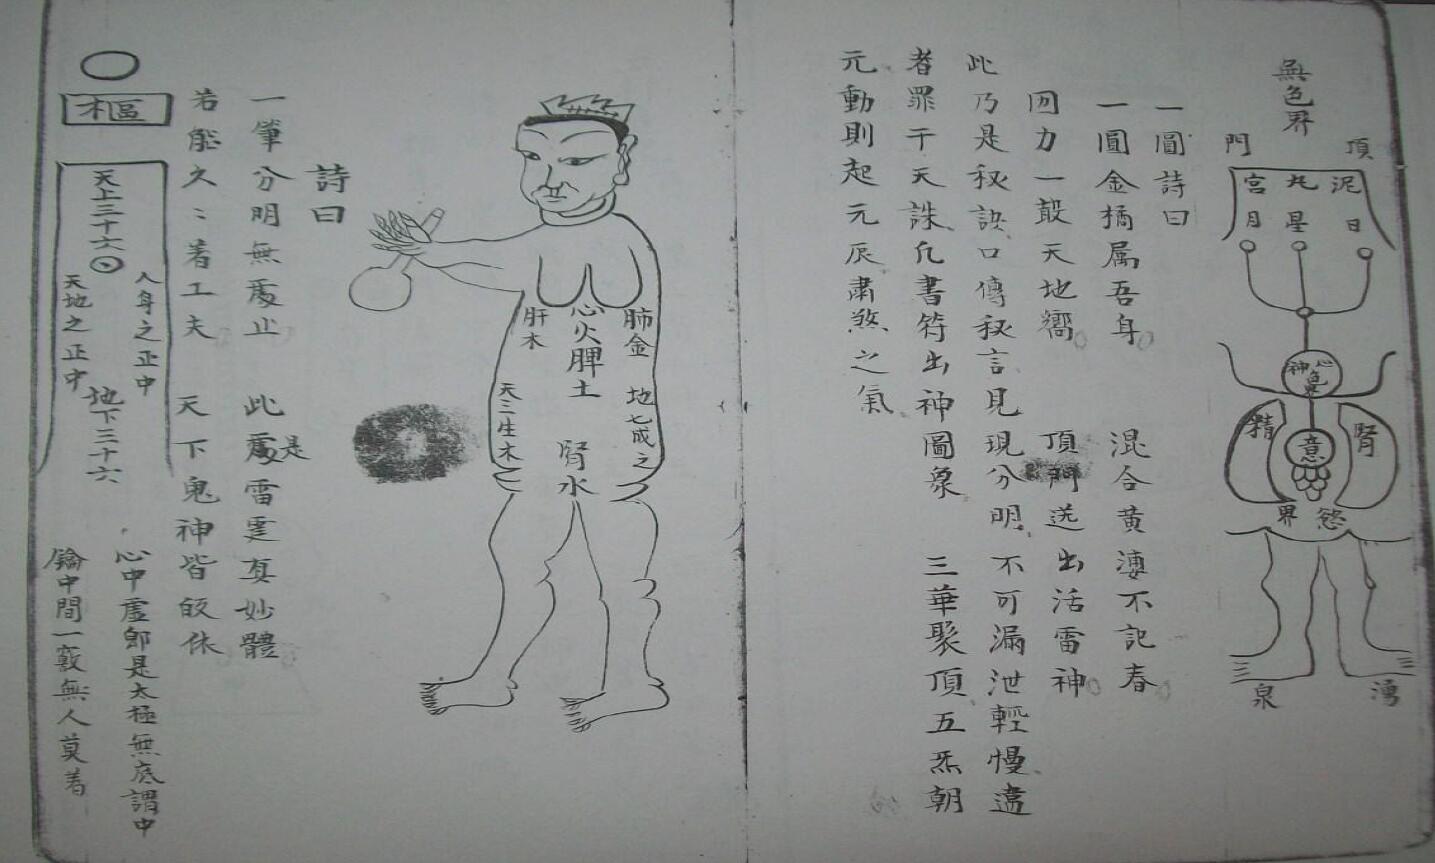 無色界
頂門
泥丸宮
日星月
心神
精
腎
意
慾界
湧泉
一圓詩曰
一圓金橘属吾身 混合黄 不記春
回力一 天地嚮 頂門送出活雷神
此乃是秘訣口傳秘言見現分明 不可漏泄輕慢違
者罪干天誅凡書符出神圖象 三華聚頂五炁朝
元動則起元辰肅煞之氣
肺金
心火
脾土
肝木
腎水
地七成之
天三生木
詩曰
一筆分明無處止 此處是雷霆真妙體
若能久〻着工夫 天下鬼神皆 休
樞
天上三十六
人身之正中
天地之正中
地下三十六
心中虛即是太極無底謂中
鑰中間一竅無人莫着